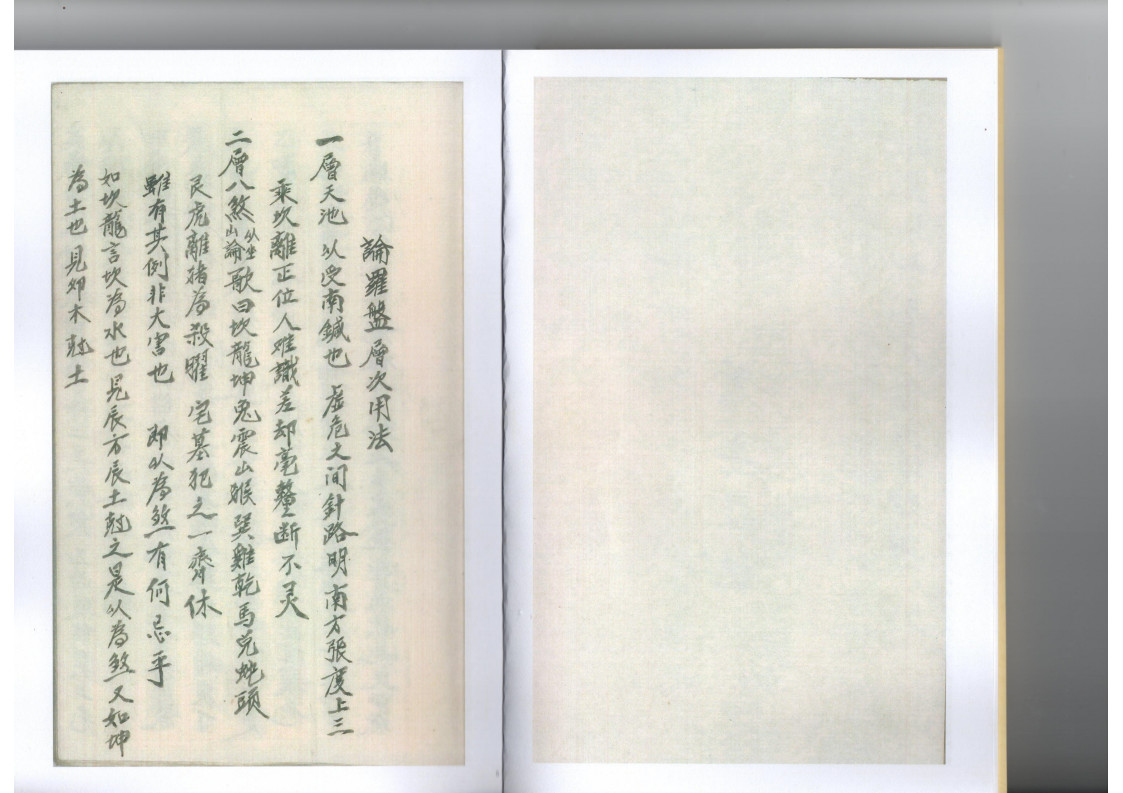 論羅盤層次用法
一層天池 以受南鍼也 虛危之间針路明南方張度上三
乘坎離正位人难識差却毫釐断不灵
二層八煞以坐山論歌曰坎龍坤兎震山猴巽雞乾馬兌蛇頭
艮虎離猪為殺曜 宅墓犯之一齊休
雖有其例非大害也 即以為煞有何忌乎
如坎龍言坎為水也見辰方辰土尅之是以為煞又如坤
為土也見卯木尅土